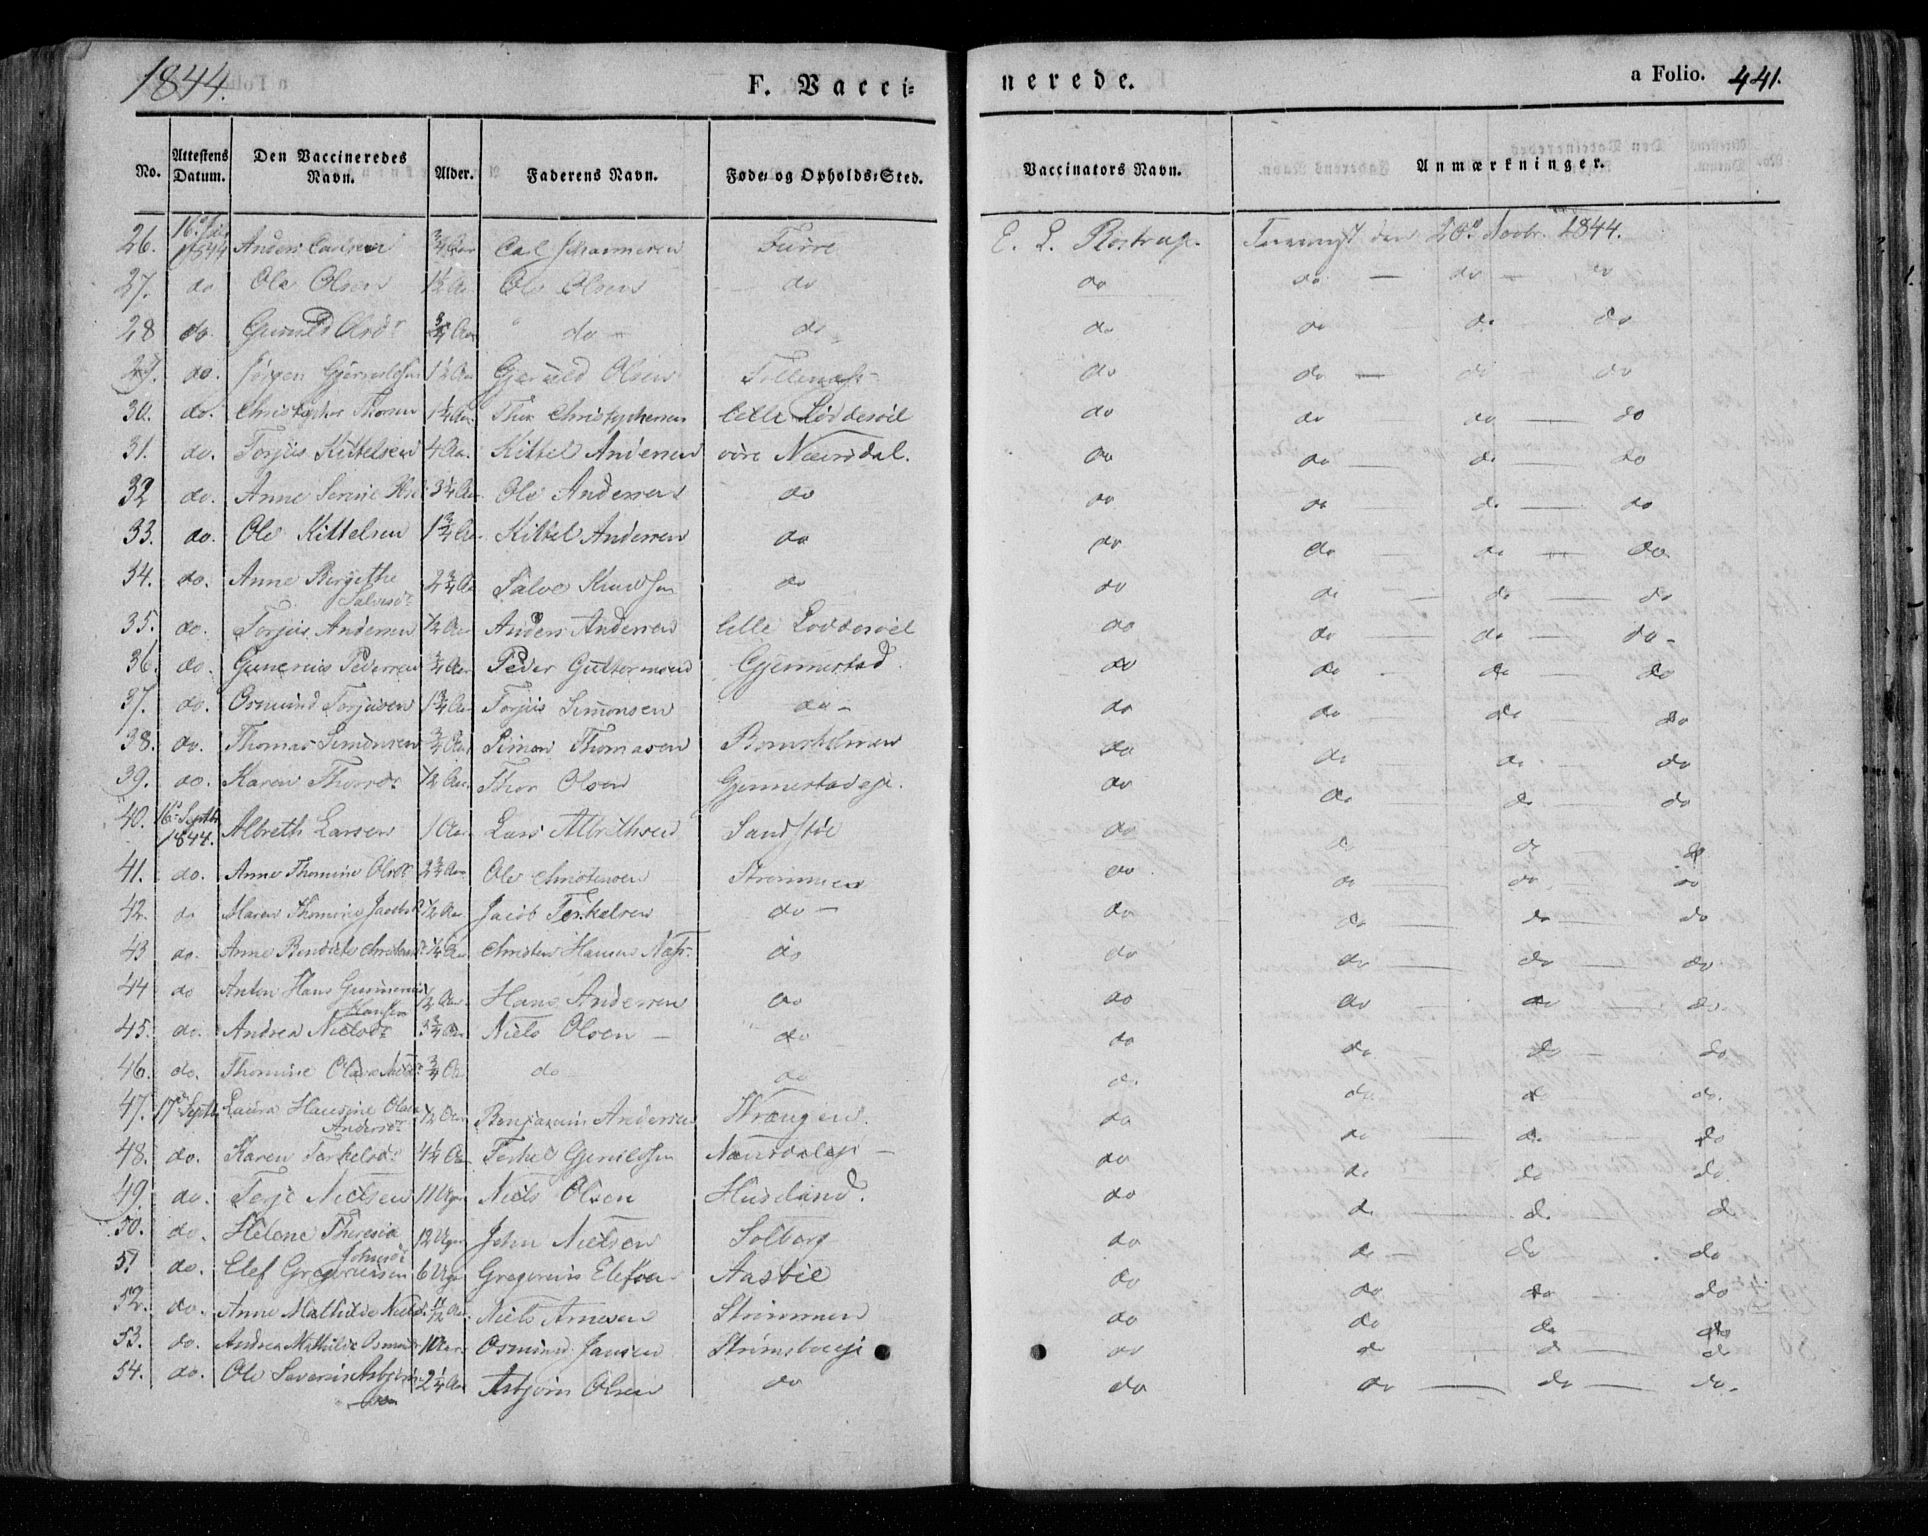 1844. F. Vacci- nerede. a Folio. 441.
No. Attestens Datum. Den Vaccineredes Navn. Alder. Faderens Navn. Føde- og Opholds-Sted. Vaccinators Navn. Anmærkninger.
26. 1844 Anders Carlsen 3/4 Aar Carl Johannesen Furre E. L. Rostrup. den 20de Novbr. 1844.
27. do Ole Olsen 1 1/2 Aar Ole Olsen do do do — do — do
28 do. Gunuld Olsdr 3/4 Aar do — do do do do do
29. do. Jørgen 1 1/2 Aar Gjeruld Olsen do do — do do
30. do. Christopher Thorsen 1 1/4 Aar Thor Christophersen lille Løddesøel do do do — do
31. do. Torjus Kittelsen 4 Aar. Kittel Andersen øvre Næersdal. do do — do — do
32 do. Anne Serine Olsdr 3 1/4 Aar Ole Andersen do do do — do — do
33. do. Ole Kittelsen 1 3/4 Aar Kittel Andersen do do do — do — do.
34. do. Anne Birgithe Salvesdr 2 3/4 Aar Salve Knudsen do do do — do — do
35. do. Torjus Andersen 1/2 Aar Anders Andersen lille Løddesøel do do — do — do-
36. do. Gunerius Pedersen 3/4 Aar Peder Guttormsen Gjennestad. do do - do do
37. do. Osmund Torjusen 1 3/4 Aar Torjus Simonsen do - do do — do do
38. do. Thomas Simonsen 3/4 Aar Simon Thomasen do do — do - do
39. do. Karen Thorsdr 1/2 Aar Thor Olsen Gjennestadeje. do do — do do
40. 16de Septbr 1844. Albreth Larsen 1 Aar Lars Albrethsen Sandstøe do do do do
41. do. Anne Thomine Olsdr 2 3/4 Aar Ole Christensen Strømmen do do do do
42. do Maren Thomine Jacobsdr 1/2 Aar Jacob Terkelsen do - do do — do — do
43 do. Anne Bendicte 1/4 Aar Christen Hansen Næss. do do do — do — do.
44 do Anton Hans Gunnerius Hansen 1/2 Aar. Hans Andersen do do do — do — do.
45. do. Andrea Nielsdr 3 3/4 Aar Niels Olsen — do do do. do — do.
46. do. Thomine Olava Nielsdr 3/4 Aar do do do do — do — do.
47. 17de Septbr Laura Hansine Olava Andersdr 1/2 Aar Benjamin Andersen Wrængen. do do — do. do
48. do. Karen Terkelsdr 4 1/2 Aar Terkel Gjeruldsen — do do — do — do.
49. do. Terje Nielsen 11 Uger Niels Olsen Huseland. do do — do — do
50. do. Helene Theresia Johnsdr 12 Uger John Nielsen Solberg do do — do . do
51 do. Elef Gregoriussen 6 Uger Gregorius Elefsen Aasbie do do do — do
52. do. Anne Mathilde Nielsdr 1/2 Aar Niels Arnesen Strømmen do do do — do
53. do. Andrea Mathilde 1 Aar. Osmund Jansen Strømsboeje do do do — do
54. do. Ole Severin Asbjørnsen 2 1/4 Aar Asbjørn Olsen do do do — do — do.